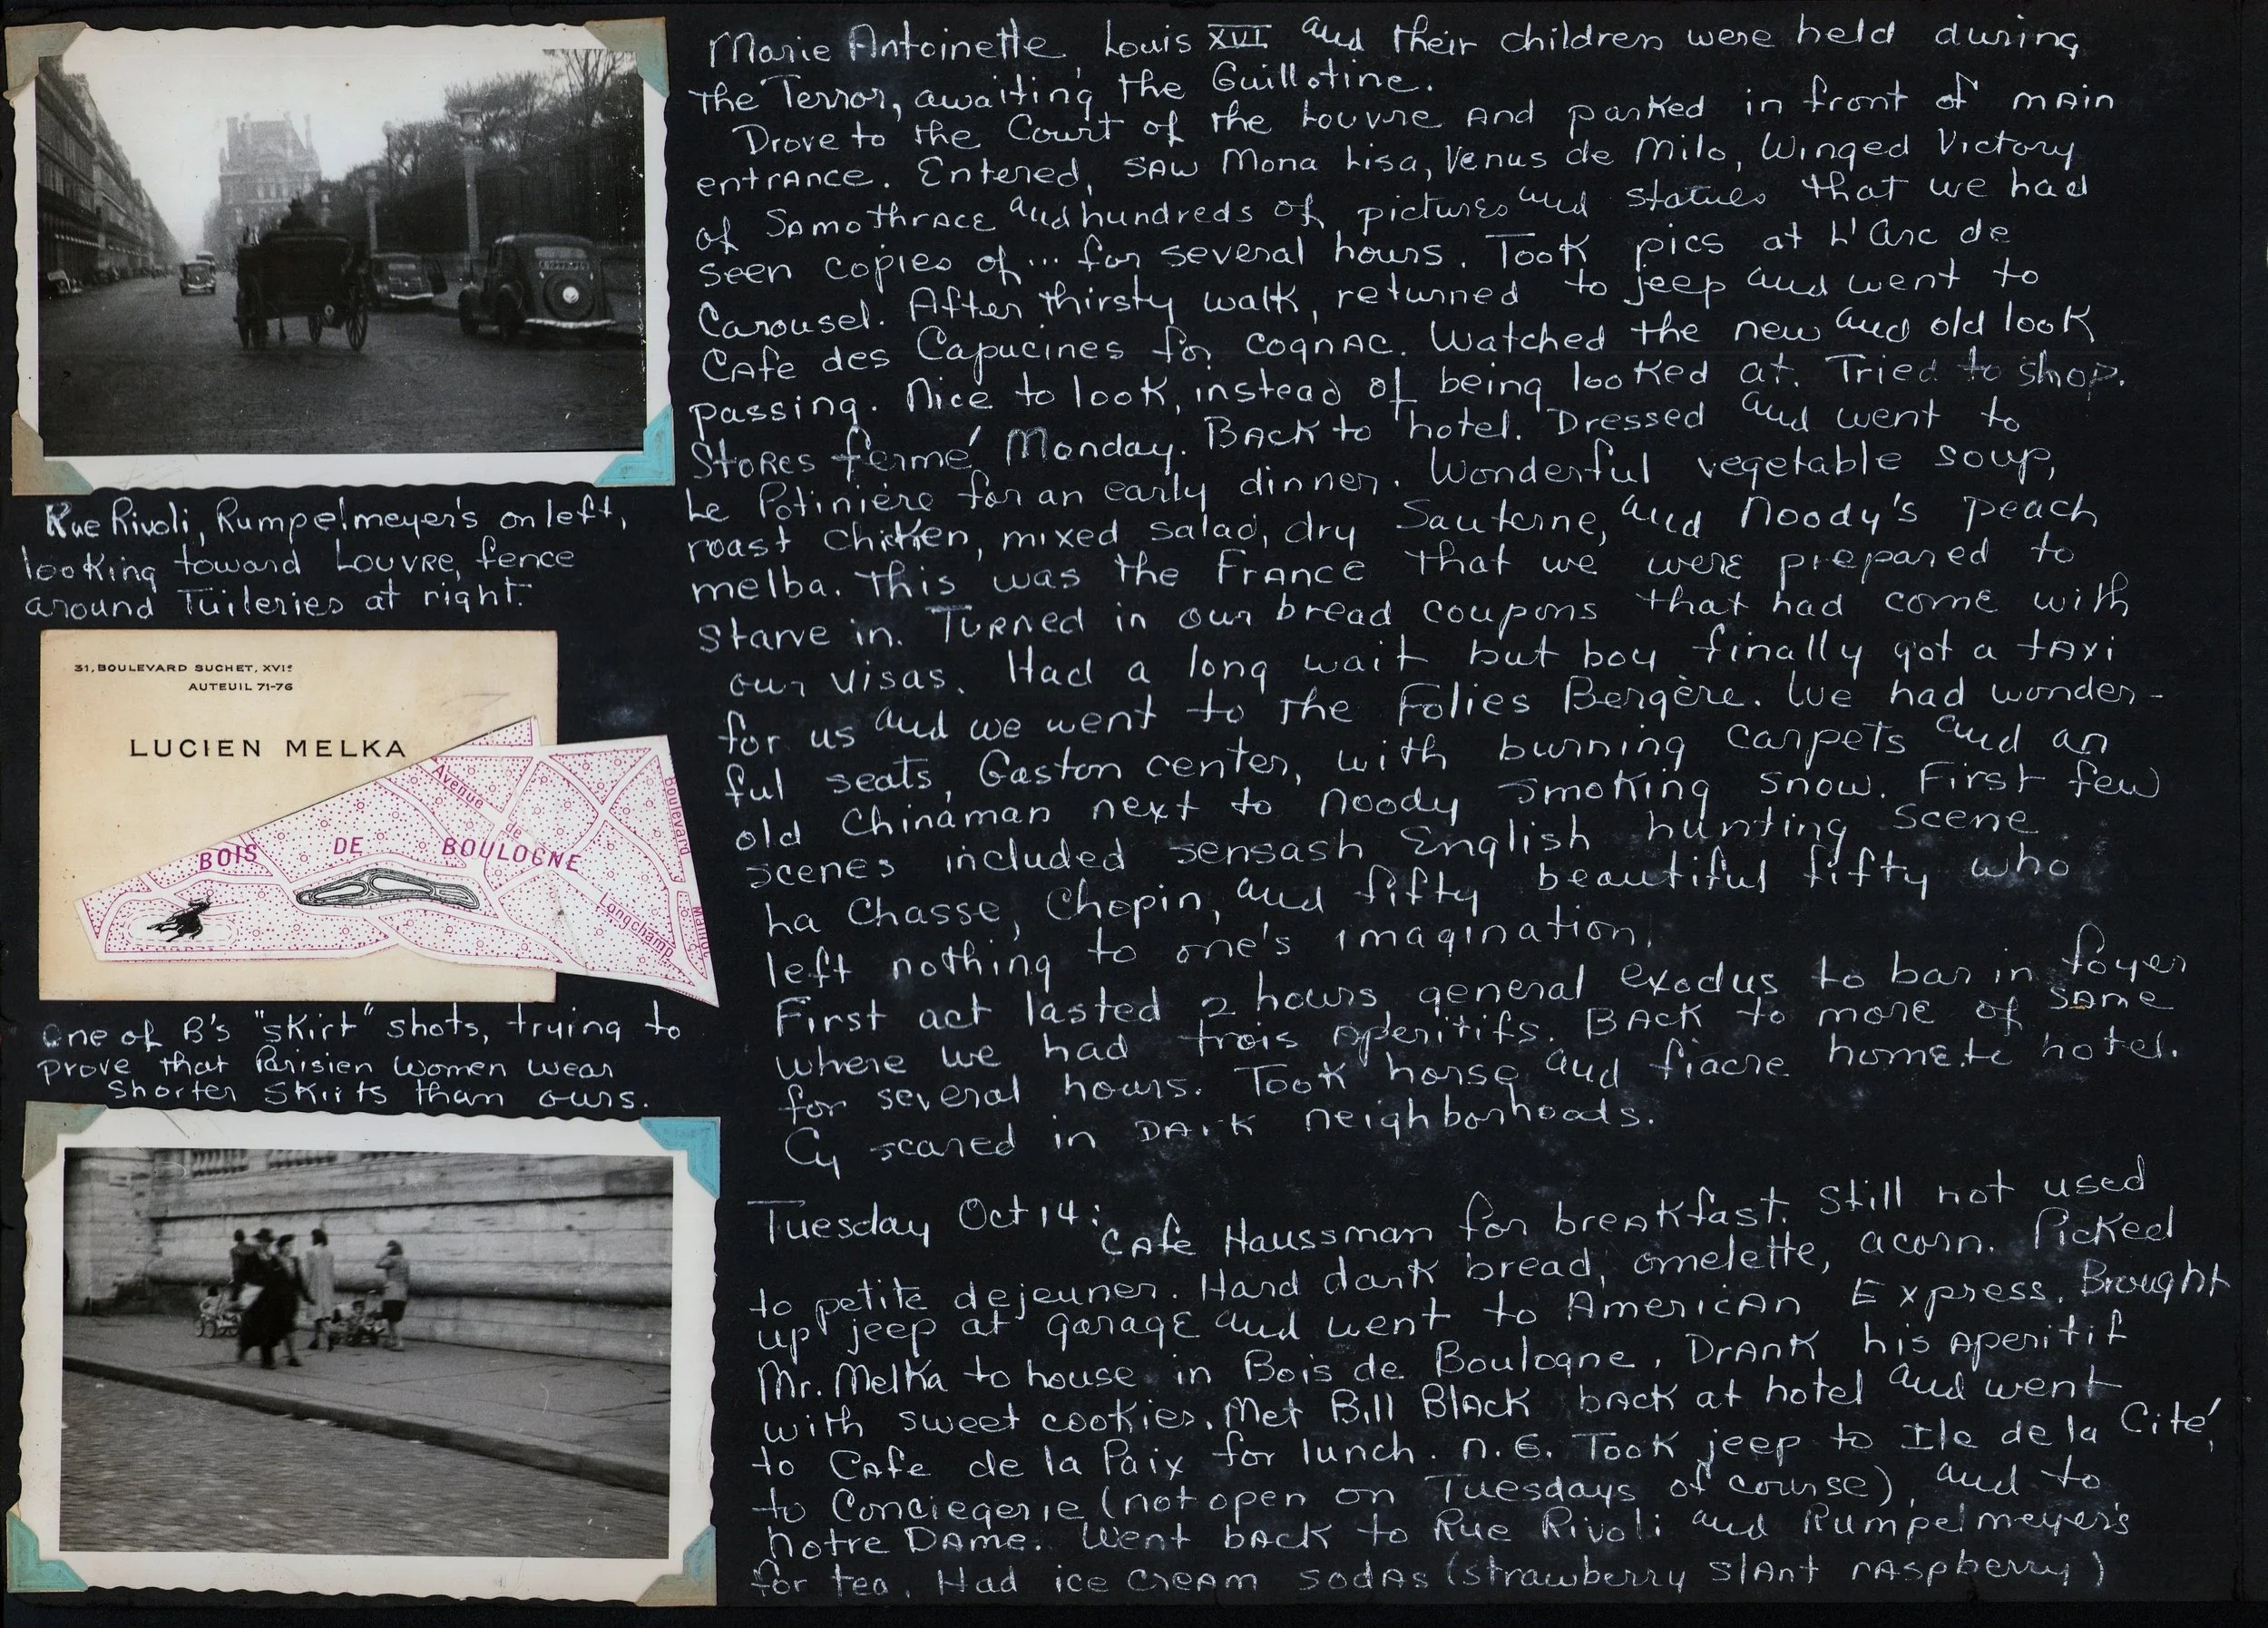 Marie Antoinette, Louis XVI and their children were held during
the Terror, awaiting the Guillotine.
Drove to the Court of the Louvre and parked in front of main
entrance. Entered, saw Mona Lisa, Venus de Milo, Winged Victory
of Samothrace and hundreds of pictures and statues that we had
seen copies of... for several hours. Took pics at L'Arc de
Carousel. After thirsty walk, returned to jeep and went to
Cafe des Capucines for cognac. Watched the new and old look
passing. Nice to look, instead of being looked at. Tried to shop.
Stores fermé Monday. Back to hotel. Dressed and went to
Le Potiniére for an early dinner. Wonderful vegetable soup,
roast chicken, mixed salad, dry Sauterne, and Noody's peach
melba. This was the France that we were prepared to
starve in. Turned in our bread coupons that had come with
our visas. Had a long wait but boy finally got a taxi
for us and we went to the Folies Bergère. We had wonder-
ful seats, Gaston center, with burning carpets and an
old Chinaman next to Noody smoking snow. First few
scenes included sensash English hunting scene
La Chasse, Chopin, and fifty beautiful fifty who
left nothing to one's imagination.
First act lasted 2 hours general exodus to bar in foyer
where we had trois aperitifs. Back to more of same
for several hours. Took horse and fiacre home to hotel.
Cy scared in dark neighborhoods.
Tuesday Oct 14:
Cafe Haussman for breakfast. Still not used
to petite dejeuner. Hard dark bread, omelette, acorn. Picked
up jeep at garage and went to American Express. Brought
Mr. Melka to house in Bois de Boulogne. Drank his aperitif
with sweet cookies. Met Bill Black back at hotel and went
to Cafe de la Paix for lunch. N.G. Took jeep to Ile de la Cité,
to Conciegerie (not open on Tuesdays of course), and to
Notre Dame. Went back to Rue Rivoli and Rumpelmeyer's
for tea. Had ice cream sodas (strawberry slant raspberry)
Rue Rivoli, Rumpelmeyer's on left,
looking toward Louvre, fence
around Tuileries at right.
31, BOULEVARD SUCHET, XVIe
AUTEUIL 71-76
LUCIEN MELKA
BOIS DE BOULOGNE
Avenue de Longchamp
Boulevard
One of B's "skirt" shots, trying to
prove that Parisien women wear
shorter skirts than ours.